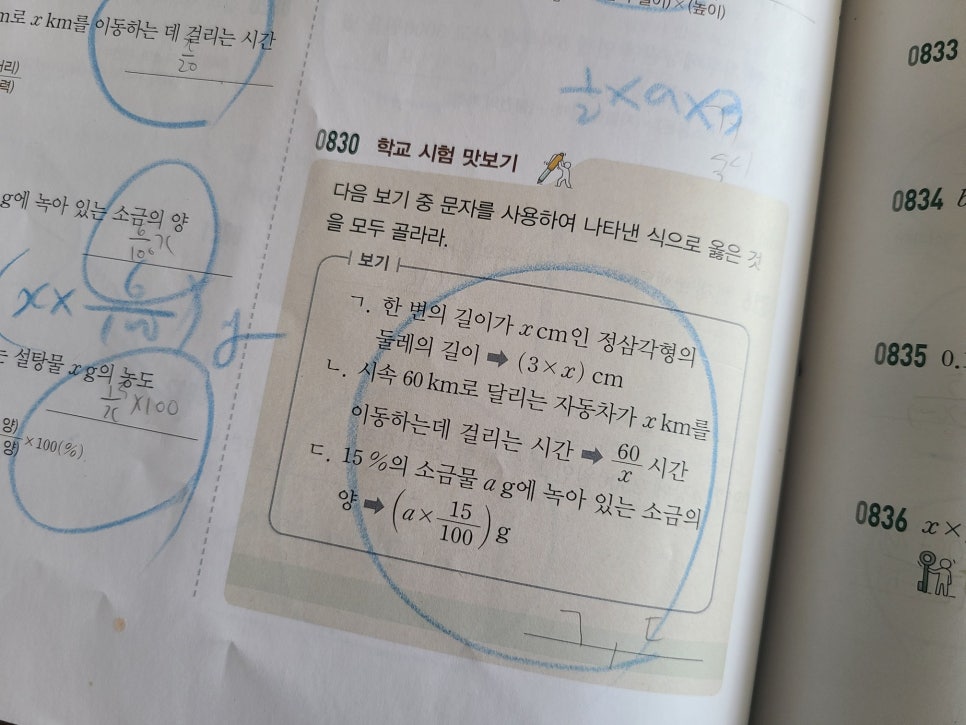 m로 x km를 이동하는 데 걸리는 시간
x/20
g에 녹아 있는 소금의 양
6/100 x
x× 6/100) g
설탕물 x g의 농도
15/x ×100
×100(%)
×(높이)
1/2 ×a×
0830 학교 시험 맛보기
다음 보기 중 문자를 사용하여 나타낸 식으로 옳은 것
을 모두 골라라.
보기
ㄱ. 한 변의 길이가 x cm인 정삼각형의
둘레의 길이 ➡ (3×x) cm
ㄴ. 시속 60 km로 달리는 자동차가 x km를
이동하는데 걸리는 시간 ➡ 60/x 시간
ㄷ. 15 %의 소금물 a g에 녹아 있는 소금의
양 ➡ (a× 15/100) g
ㄱ, ㄷ
0833
0834
0835 0.
0836 x×